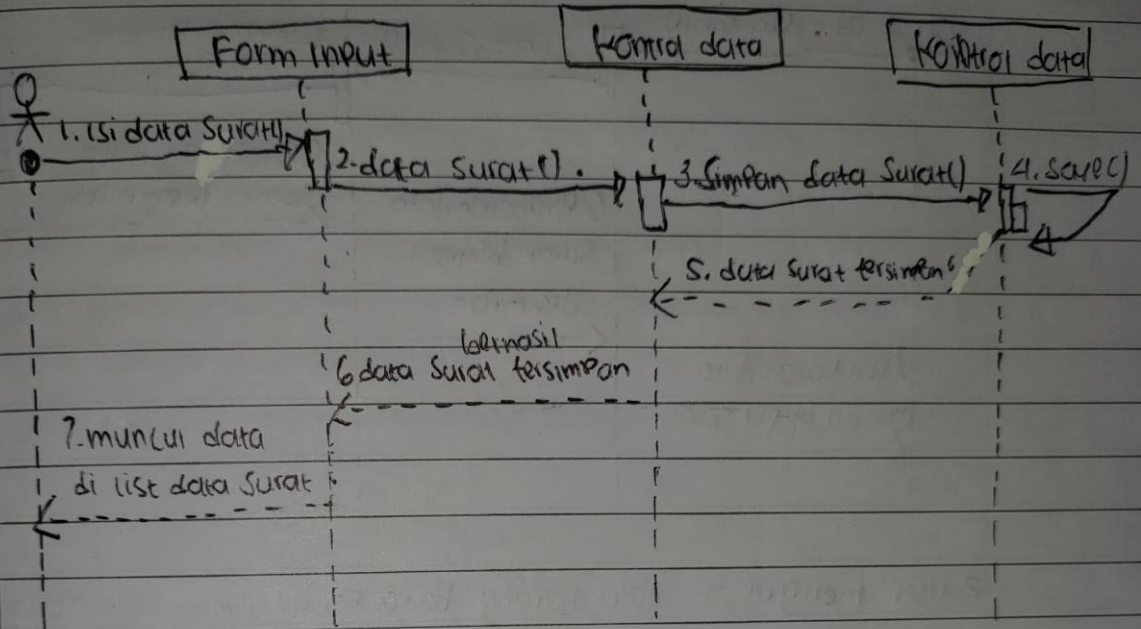 Form input
Kontrol data
Kontrol data
1. isi data Surat()
2. data surat().
3. Simpan data Surat()
4. save()
5. data surat tersimpan
berhasil
6 data Surat tersimpan
7. muncul data
di list data Surat